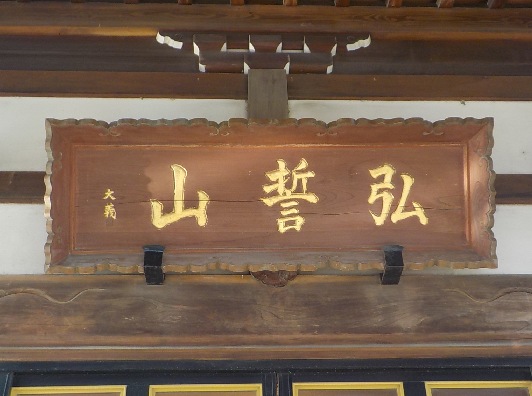 弘誓山
大義